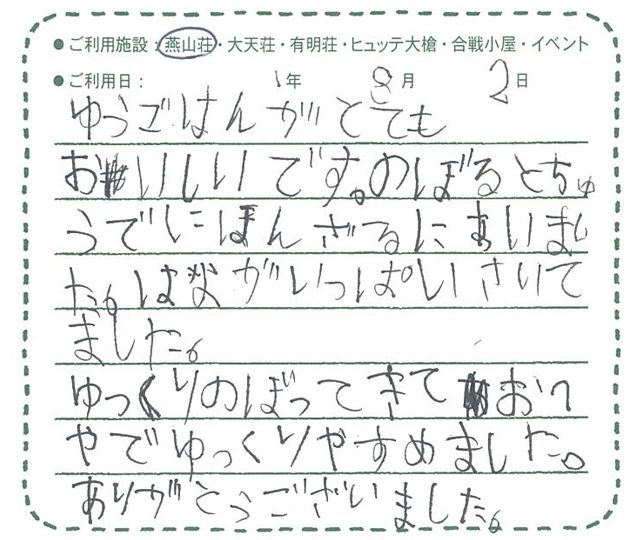 ● ご利用施設：燕山荘・大天荘・有明荘・ヒュッテ大槍・合戦小屋・イベント
● ご利用日： 1年 8月 2日
ゆうごはんがとても
おいしいです。のぼるとちゅ
うでにほんざるにあいまし
た。はながいっぱいさいて
ました。
ゆっくりのぼってきておへ
やでゆっくりやすめました。
ありがとうございました。